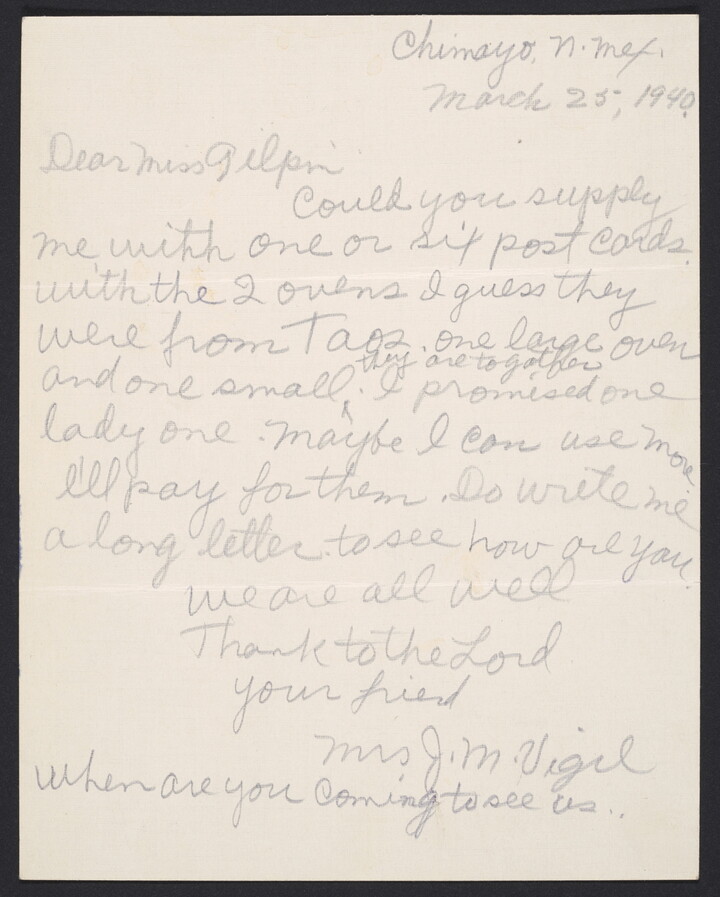 Chimayo, N. Mex.
March 25, 1940.
Dear Miss Gilpin
Could you supply
me with one or six post cards.
with the 2 ovens I guess they
were from Taos. one large oven
they are togather
and one small. I promised one
lady one. Maybe I can use more
I'll pay for them. Do write me
a long letter. to see how are you.
We are all well
Thank to the Lord
your fried
Mrs J. M. Vigil
When are you coming to see us..